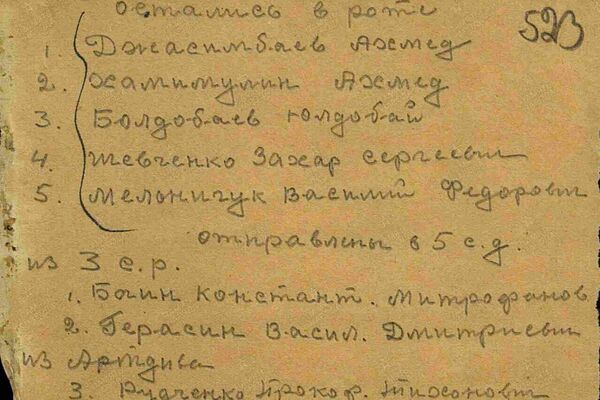 остались в роте
523
1. Джасимбаев Ахмед
2. Хамимулин Ахмед
3. Болдобаев Юлдобай
4. Шевченко Захар Сергеевич
5. Мельничук Василий Федорович
отправлены в 5 с.д.
из 3 с.р.
1. Боин Констант. Митрофанов
2. Герасин Васил. Дмитриевич
из Артдива
3. Рудченко Прокоф. Тихонович